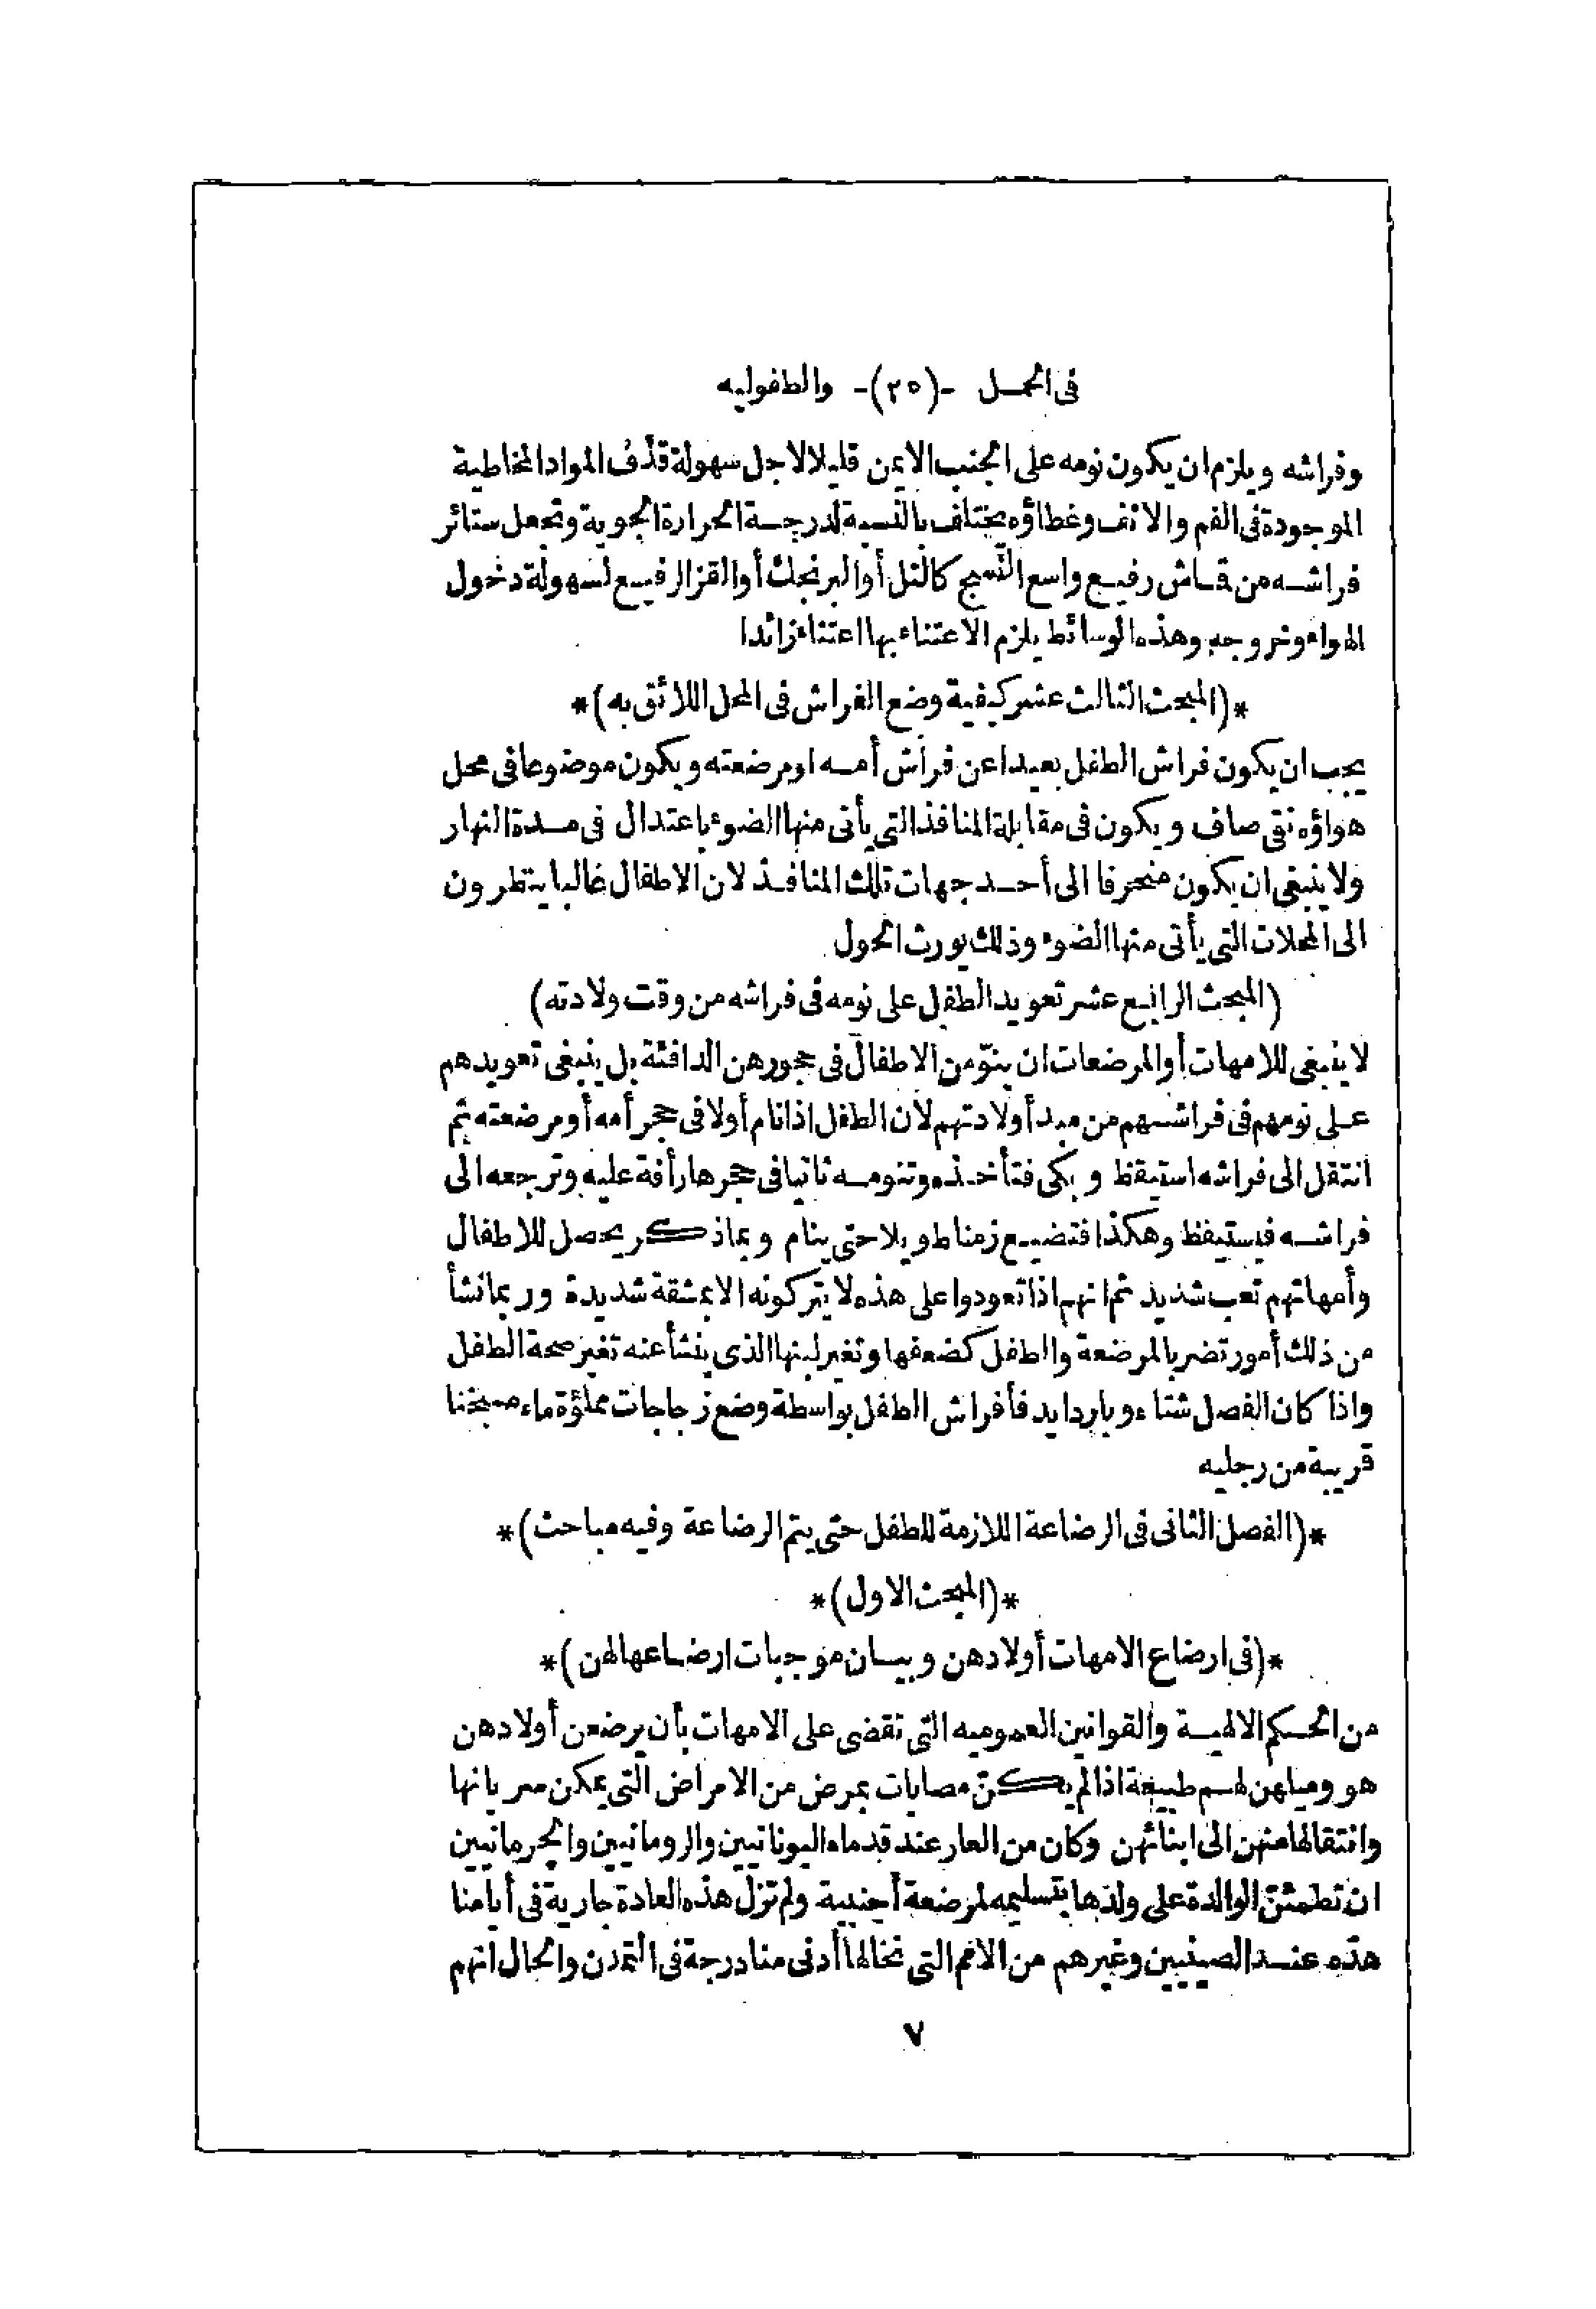 فى الحمل -(٢٥)- والطفوليه
وفراشه ويلزم ان يكون نومه على الجنب الايمن قليلا لاجل سهولة قذف المواد المخاطية
الموجودة فى الفم والانف وغطاؤه يختلف بالنسبة لدرجة الحرارة الجوية وتجعل ستائر
فراشه من قماش رفيع واسع النسيج كالتل أو البرنجك أو القز الرفيع لسهولة دخول
الهواء وخروجه وهذه الوسائط يلزم الاعتناء بها اعتناء زائدا
*(المبحث الثالث عشر كيفية وضع الفراش فى المحل اللائق به)*
يجب ان يكون فراش الطفل بعيدا عن فراش أمه او مرضعته ويكون موضوعا فى محل
هواؤه نقى صاف ويكون فى مقابلة المنافذ التى يأتى منها الضوء باعتدال فى مدة النهار
ولا ينبغى ان يكون منحرفا الى أحد جهات تلك المنافذ لان الاطفال غالبا ينظرون
الى المحلات التى يأتى منها الضوء وذلك يورث الحول
(المبحث الرابع عشر تعويد الطفل على نومه فى فراشه من وقت ولادته)
لا ينبغى للامهات أو المرضعات ان ينوّمن الاطفال فى حجورهن الدافئة بل ينبغى تعويدهم
على نومهم فى فراشهم من مبدأ ولادتهم لان الطفل اذا نام أولا فى حجر أمه أو مرضعته ثم
انتقل الى فراشه استيقظ وبكى فتأخذه وتنومه ثانيا فى حجرها رأفة عليه وترجعه الى
فراشه فيستيقظ وهكذا فتضيع زمنا طويلا حتى ينام وبماذكر يحصل للاطفال
وأمهاتهم تعب شديد ثم انهم اذا تعودوا على هذه لا يتركونه الا بمشقة شديدة وربما نشأ
من ذلك أمور تضر بالمرضعة والطفل كضعفها وتغير لبنها الذى ينشأ عنه تغير صحة الطفل
واذا كان الفصل شتاء وباردا يدفأ فراش الطفل بواسطة وضع زجاجات مملؤة ماء مسخنا
قريبة من رجليه
*(الفصل الثانى فى الرضاعة اللازمة للطفل حتى يتم الرضاعة وفيه مباحث)*
*(المبحث الاول)*
*(فى ارضاع الامهات أولادهن وبيان موجبات ارضاعها لهن)*
من الحكم الالهية والقوانين العموميه التى تقضى على الامهات بأن يرضعن أولادهن
هو وميلهن لهم طبيعة اذا لم يكنّ مصابات بمرض من الامراض التى يمكن سريانها
وانتقالها منهن الى ابنائهن وكان من العار عند قدماء اليونانيين والرومانيين والجرمانيين
ان تطمئن الوالدة على ولدها بتسليمه لمرضعة أجنبية ولم تزل هذه العادة جارية فى أيامنا
هذه عند الصينيين وغيرهم من الامم التى نخالها أدنى منا درجة فى التمدن والحال انهم
٧